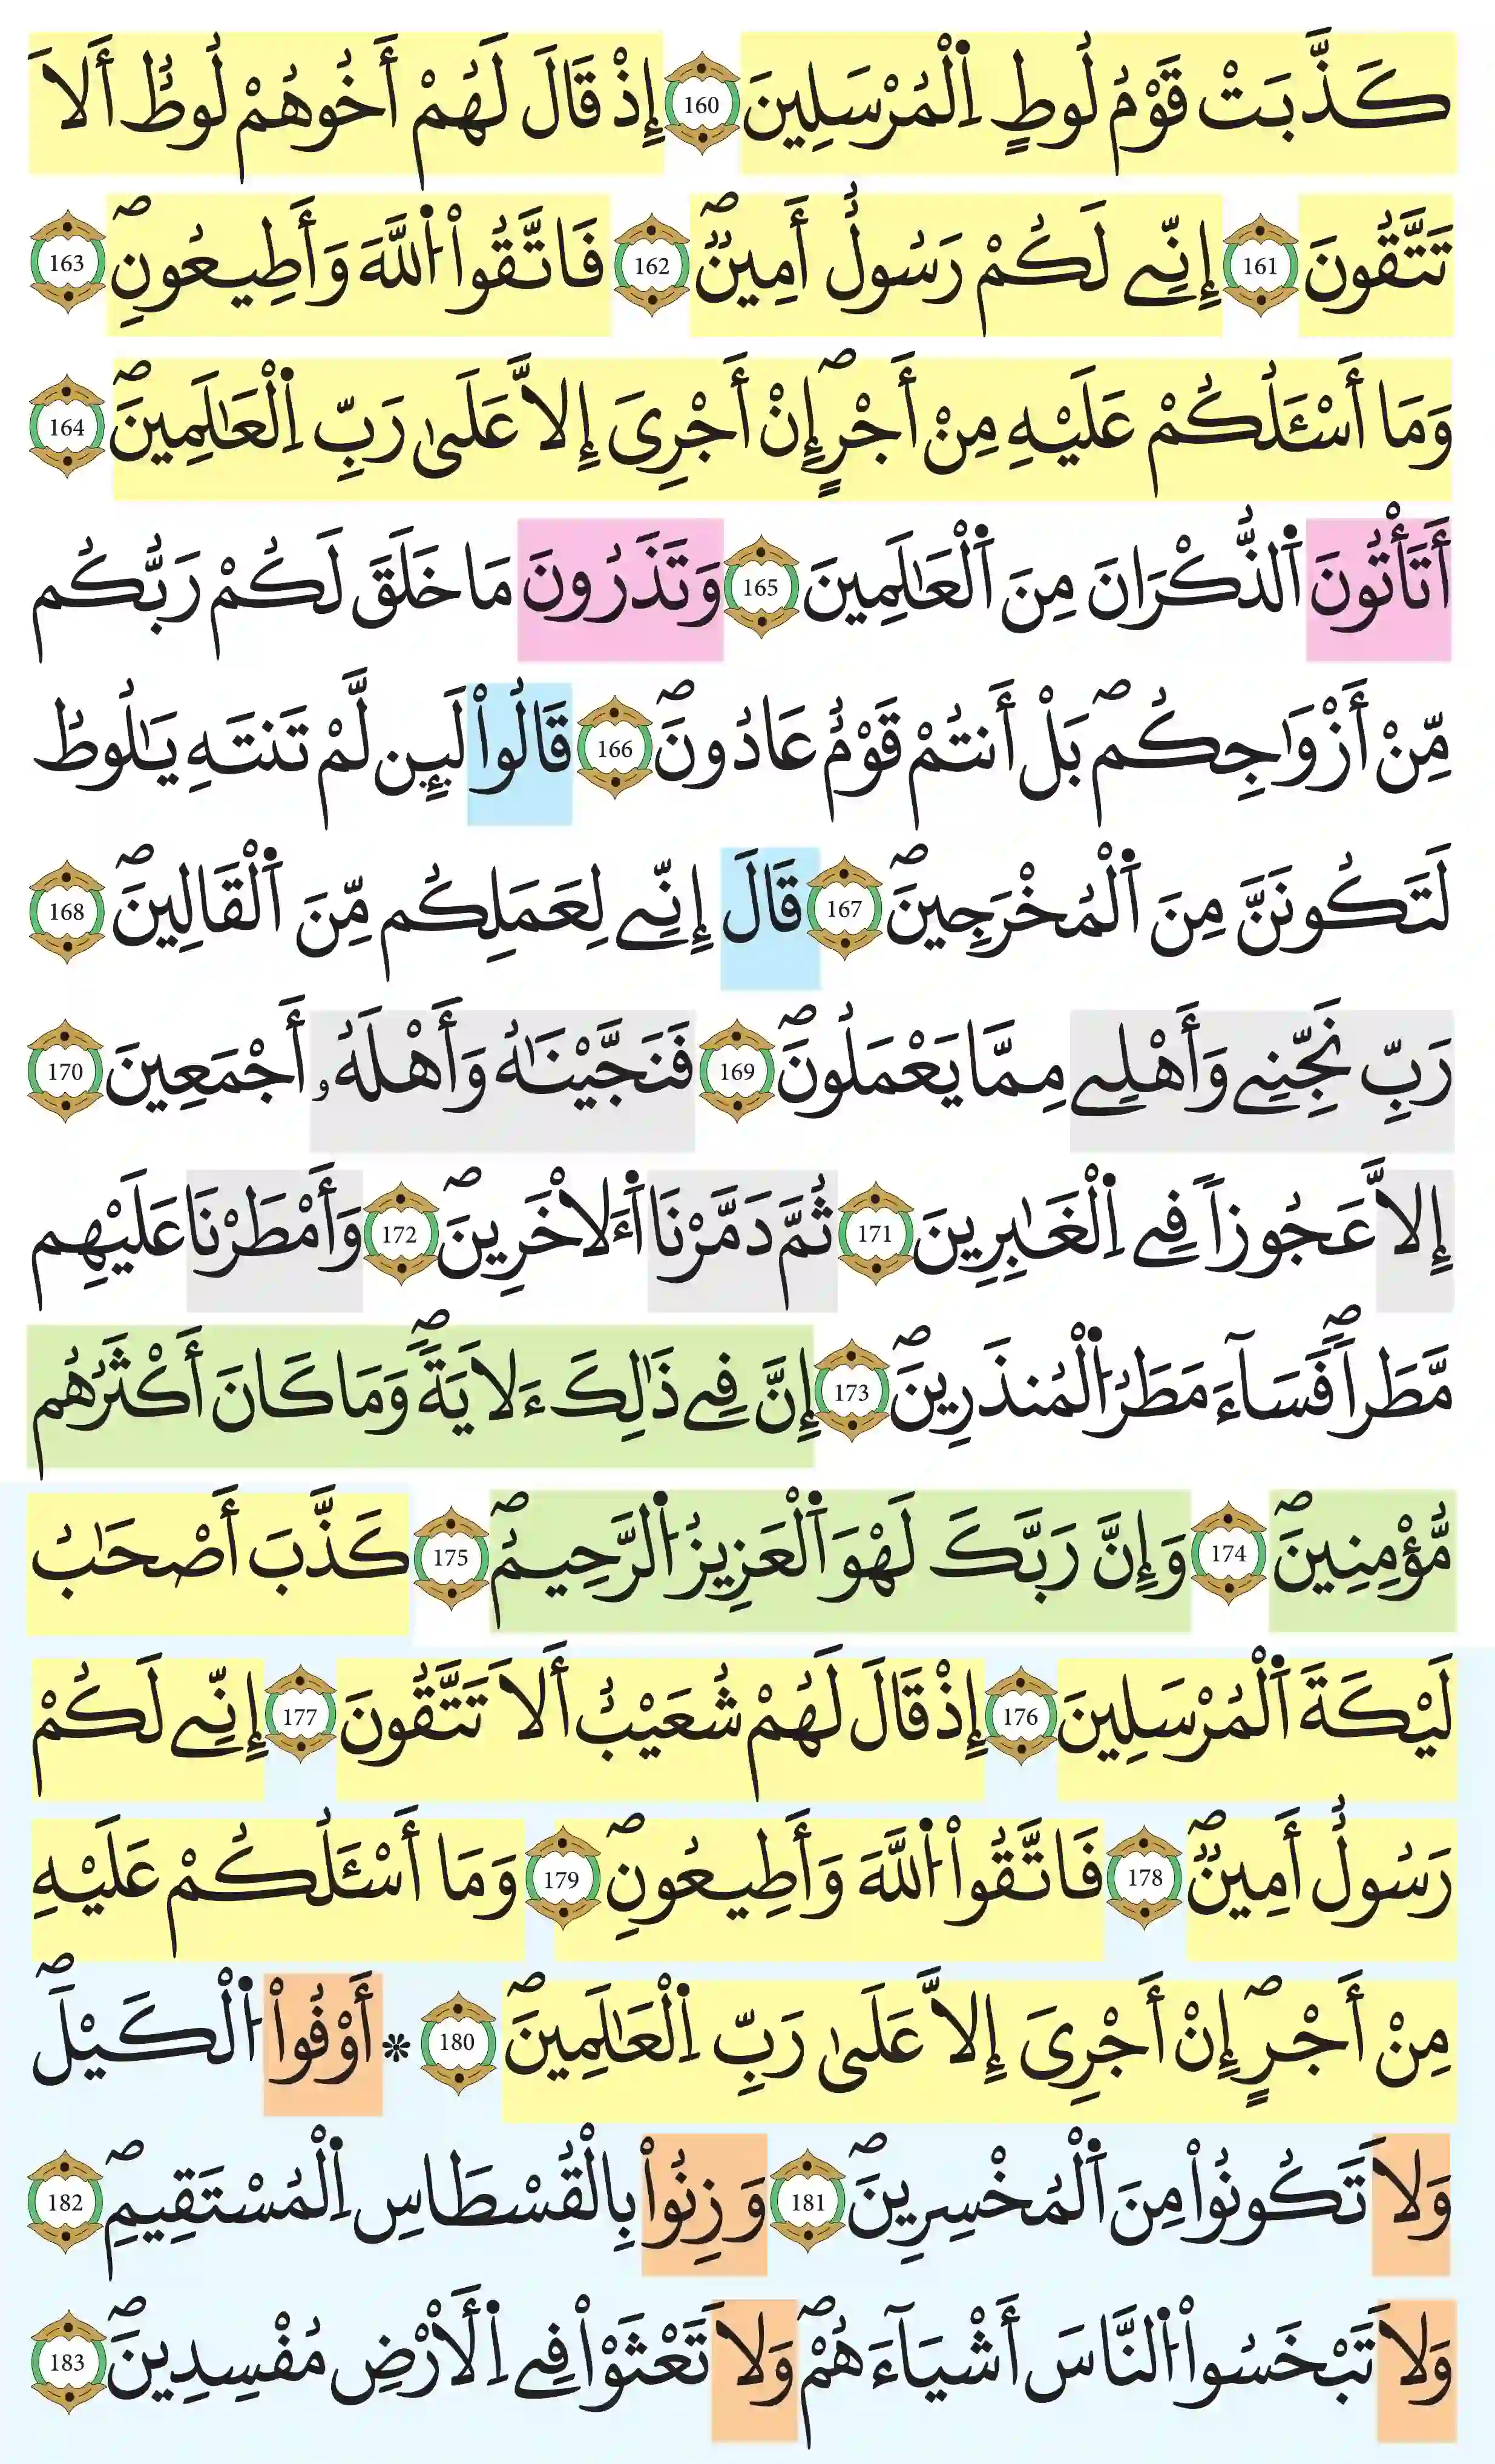 كَذَّبَتْ قَوْمُ لُوطٍ اِ۬لْمُرْسَلِينَ 160 إِذْ قَالَ لَهُمْ أَخُوهُمْ لُوطٌ أَلاَ
تَتَّقُونَ 161 إِنِّے لَكُمْ رَسُولٌ أَمِينٞۖ 162 فَاتَّقُواْ اُ۬للَّهَ وَأَطِيعُونِۖ 163
وَمَا أَسْـَٔلُكُمْ عَلَيْهِ مِنْ أَجْرٍۖ إِنْ أَجْرِىَ إِلاَّ عَلَىٰ رَبِّ اِ۬لْعَٰلَمِينَۖ 164
أَتَأْتُونَ اَ۬لذُّكْرَانَ مِنَ اَ۬لْعَٰلَمِينَ 165 وَتَذَرُونَ مَا خَلَقَ لَكُمْ رَبُّكُم
مِّنْ أَزْوَٰجِكُمۖ بَلْ أَنتُمْ قَوْمٌ عَادُونَۖ 166 قَالُواْ لَئِن لَّمْ تَنتَهِ يَٰلُوطُ
لَتَكُونَنَّ مِنَ اَ۬لْمُخْرَجِينَۖ 167 قَالَ إِنِّے لِعَمَلِكُم مِّنَ اَ۬لْقَالِينَۖ 168
رَبِّ نَجِّنِے وَأَهْلِے مِمَّا يَعْمَلُونَۖ 169 فَنَجَّيْنَٰهُ وَأَهْلَهُۥ أَجْمَعِينَ 170
إِلاَّ عَجُوزاً فِے اِ۬لْغَٰبِرِينَ 171 ثُمَّ دَمَّرْنَا اَ۬ءَلاْخَرِينَۖ 172 وَأَمْطَرْنَا عَلَيْهِم
مَّطَراًۖ فَسَآءَ مَطَرُ اُ۬لْمُنذَرِينَۖ 173 إِنَّ فِے ذَٰلِكَ ءَلاَيَةًۖ وَمَا كَانَ أَكْثَرُهُم
مُّؤْمِنِينَۖ 174 وَإِنَّ رَبَّكَ لَهْوَ اَ۬لْعَزِيزُ اُ۬لرَّحِيمُۖ 175 كَذَّبَ أَصْحَٰبُ
لَيْكَةَ اَ۬لْمُرْسَلِينَ 176 إِذْ قَالَ لَهُمْ شُعَيْبٌ أَلاَ تَتَّقُونَ 177 إِنِّے لَكُمْ
رَسُولٌ أَمِينٞۖ 178 فَاتَّقُواْ اُ۬للَّهَ وَأَطِيعُونِۖ 179 وَمَا أَسْـَٔلُكُمْ عَلَيْهِ
مِنْ أَجْرٍۖ إِنْ أَجْرِىَ إِلاَّ عَلَىٰ رَبِّ اِ۬لْعَٰلَمِينَۖ 180 * أَوْفُواْ اُ۬لْكَيْلَۖ
وَلاَ تَكُونُواْ مِنَ اَ۬لْمُخْسِرِينَۖ 181 وَزِنُواْ بِالْقُسْطَاسِ اِ۬لْمُسْتَقِيمِۖ 182
وَلاَ تَبْخَسُواْ اُ۬لنَّاسَ أَشْيَآءَهُمْۖ وَلاَ تَعْثَوْاْ فِے اِ۬لْأَرْضِ مُفْسِدِينَۖ 183